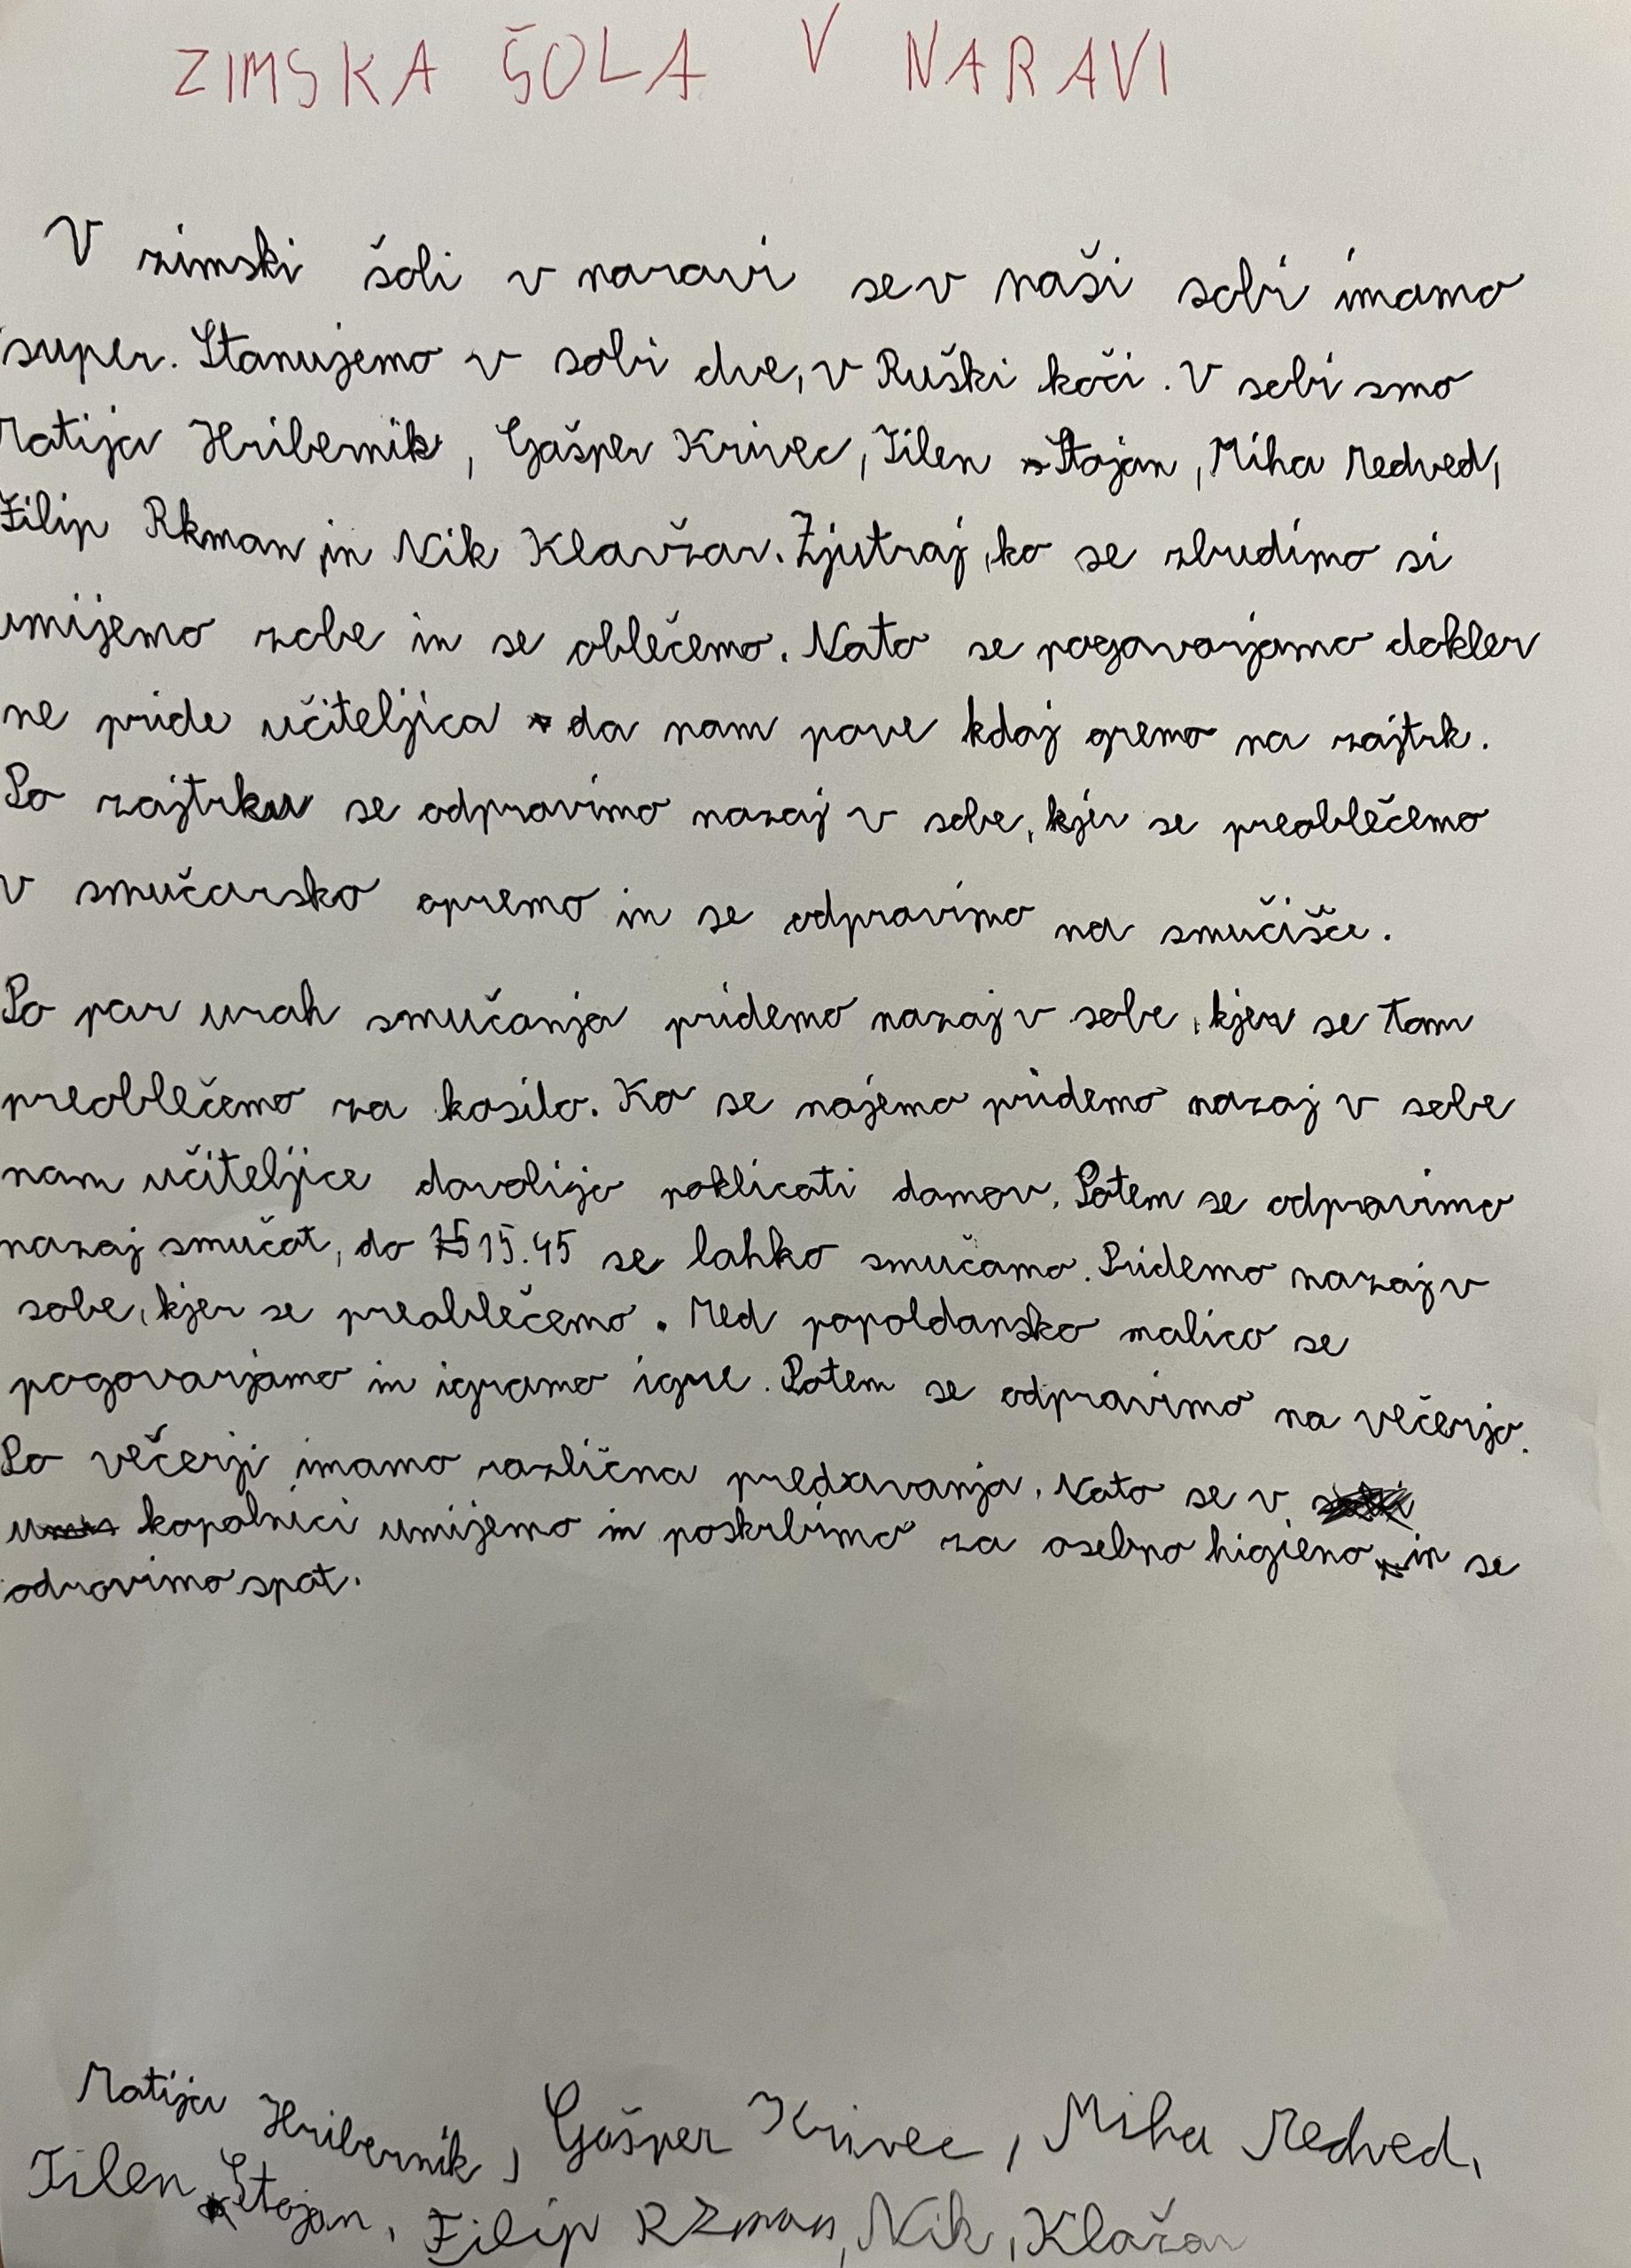 ZIMSKA ŠOLA V NARAVI
V zimski šoli v naravi se v naši sobi imamo
super. Stanujemo v sobi dve, v Ruški koči. V sobi smo
Matija Hribernik, Gašper Krivec, Tilen Stojan, Miha Medved,
Filip Rkman in Nik Klavžar. Zjutraj, ko se zbudimo si
umijemo zobe in se oblečemo. Nato se pogovarjamo dokler
ne pride učiteljica da nam pove kdaj gremo na zajtrk.
Po zajtrku se odpravimo nazaj v sobe, kjer se preoblečemo
v smučarsko opremo in se odpravimo na smučišče.
Po par urah smučanja pridemo nazaj v sobe, kjer se tam
preoblečemo za kosilo. Ko se najemo pridemo nazaj v sobe
nam učiteljice dovolijo poklicati domov. Potem se odpravimo
nazaj smučat, do 15.45 se lahko smučamo. Pridemo nazaj v
sobe, kjer se preoblečemo. Med popoldansko malico se
pogovarjamo in igramo igre. Potem se odpravimo na večerjo.
Po večerji imamo različna predavanja. Nato se v
kopalnici umijemo in poskrbimo za osebno higieno in se
odravimo spat.
Matija Hribernik, Gašper Krivec, Miha Medved,
Tilen Stojan, Filip Rzman, Nik, Klažar